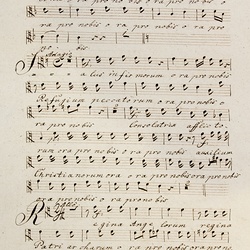 ora pro nobis o ra pro nobis o ra pro
no bis
Adagio
Salus infirmorum o ra pro nobis
Refugium peccatorum o ra pro nobis o
ra pro nobis Consolatrix afflicto
rum ora pro nobis o ra pro nobis auxilium
Christianorum ora o ra pro nobis ora pro nobis
o ra pro nobis o ra pro nobis
Regina Angelorum regina
Patriarcharum o ra pro nobis ora pro no